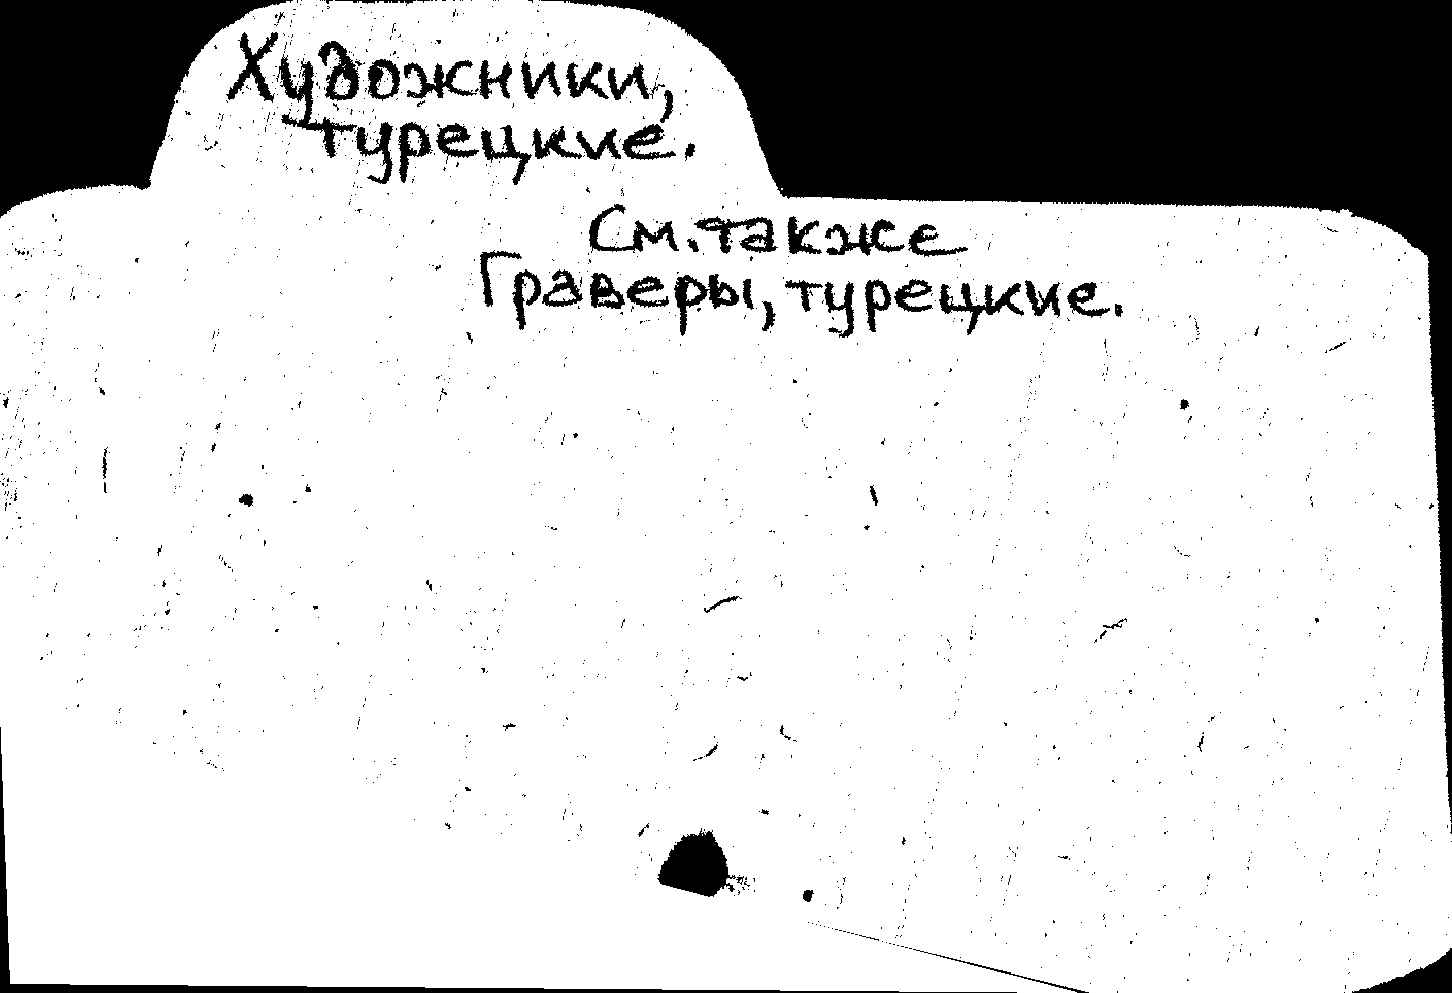 Художники,
турецкие.
См. также
Граверы, турецкие.